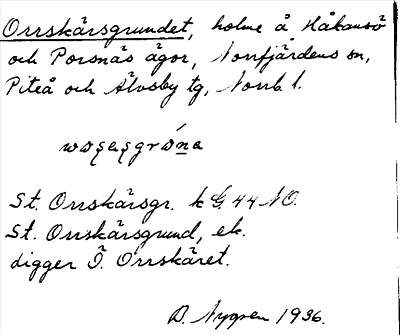 Orrskärsgrundet, holme å Håkansö
och Porsnäs ägor, Norrfjärdens sn,
Piteå och Älvsby tg, Norrb l.
St. Orrskärsgr. k G. 44 NO.
St. Orrskärsgrund, ek.
ligger Ö. Orrskäret.
D. Nygren 1936.